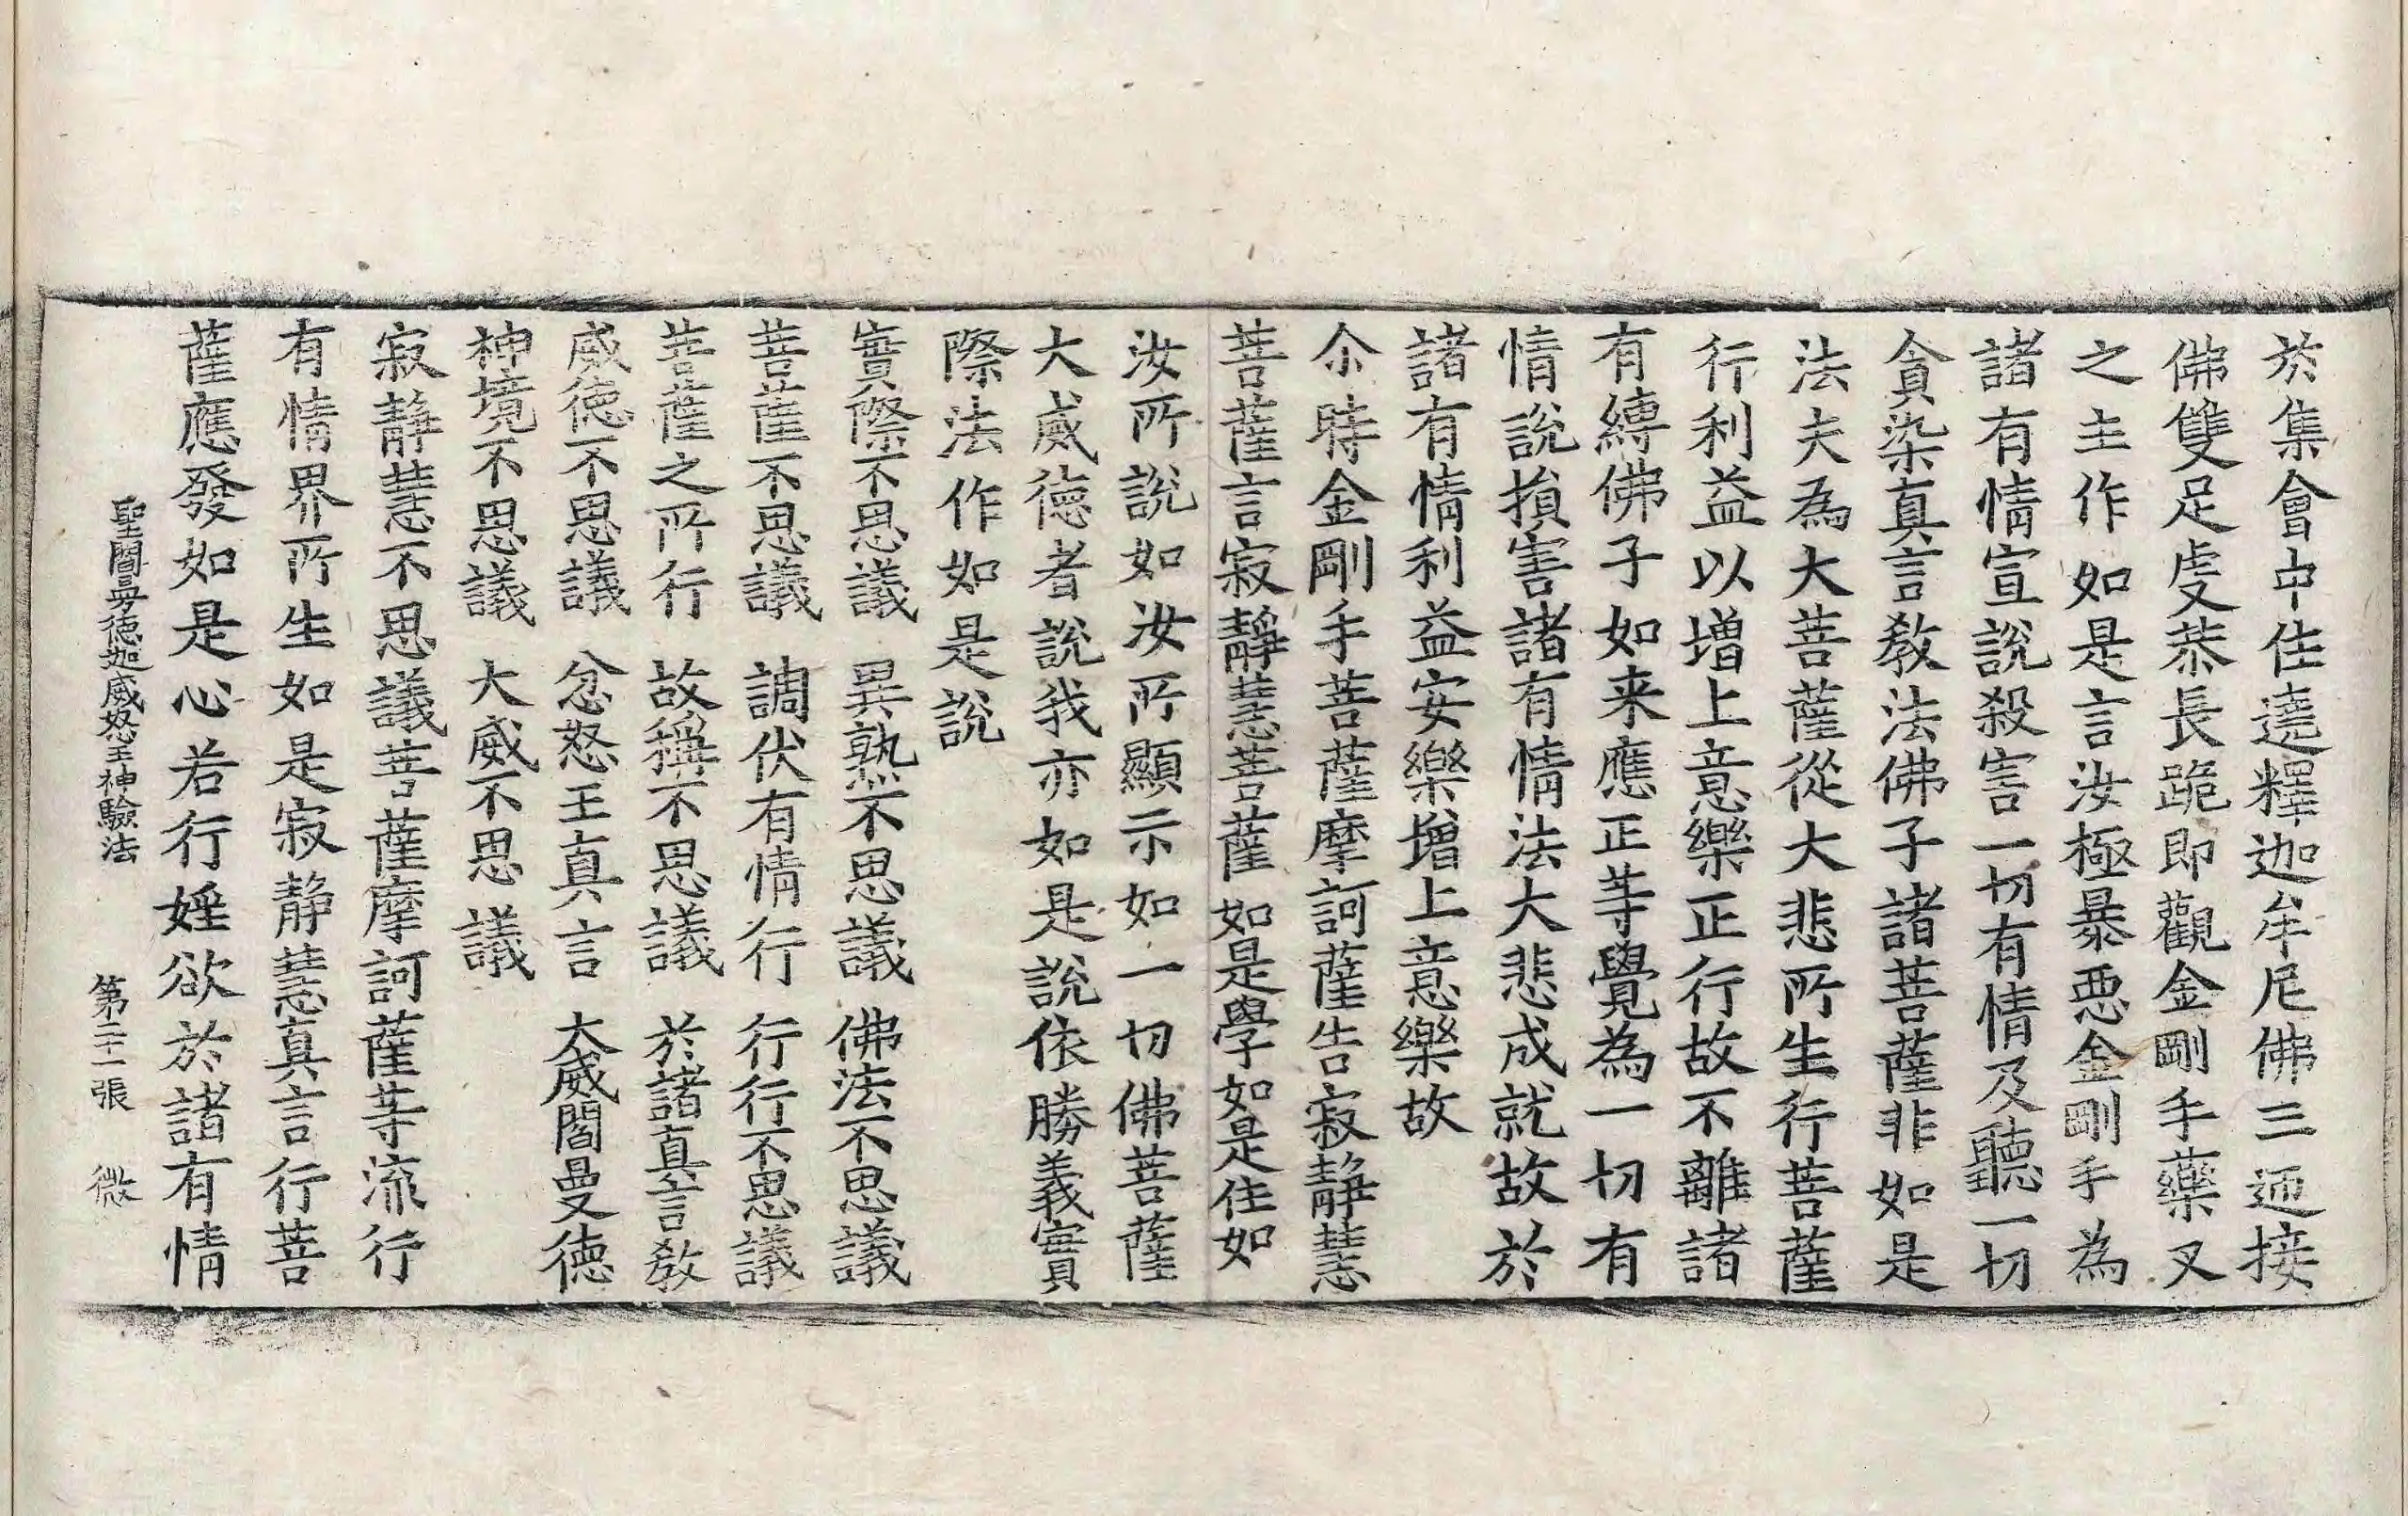 於集會中住遶釋迦牟尼佛三迊接
佛雙足虔恭長跪即觀金剛手藥叉
之主作如是言汝極暴恶金剛手為
諸有情宣說殺害一切有情及聽一切
貪染真言教法佛子諸菩薩非如是
法夫為大菩薩從大悲所生行菩薩
行利益以增上意樂正行故不離諸
有縛佛子如来應正等覺為一切有
情說損害諸有情法大悲成就故於
諸有情利益安樂增上意樂故
尒時金剛手菩薩摩訶薩告寂靜慧
菩薩言寂靜慧菩薩如是學如是住如
汝所說如汝所顯示如一切佛菩薩
大威德者說我亦如是說依勝義實
際法作如是說
實際不思議　異熟不思議　佛法不思議
菩薩不思議　調伏有情行　行行不思議
菩薩之所行　故稱不思議　於諸真言教
威德不思議　忿怒王真言　大威閻曼德
神境不思議　大威不思議
寂靜慧不思議菩薩摩訶薩等流行
有情界所生如是寂静慧真言行菩
薩應發如是心若行婬欲於諸有情
聖閻曼德迦威怒王神驗法　第二十一張　微